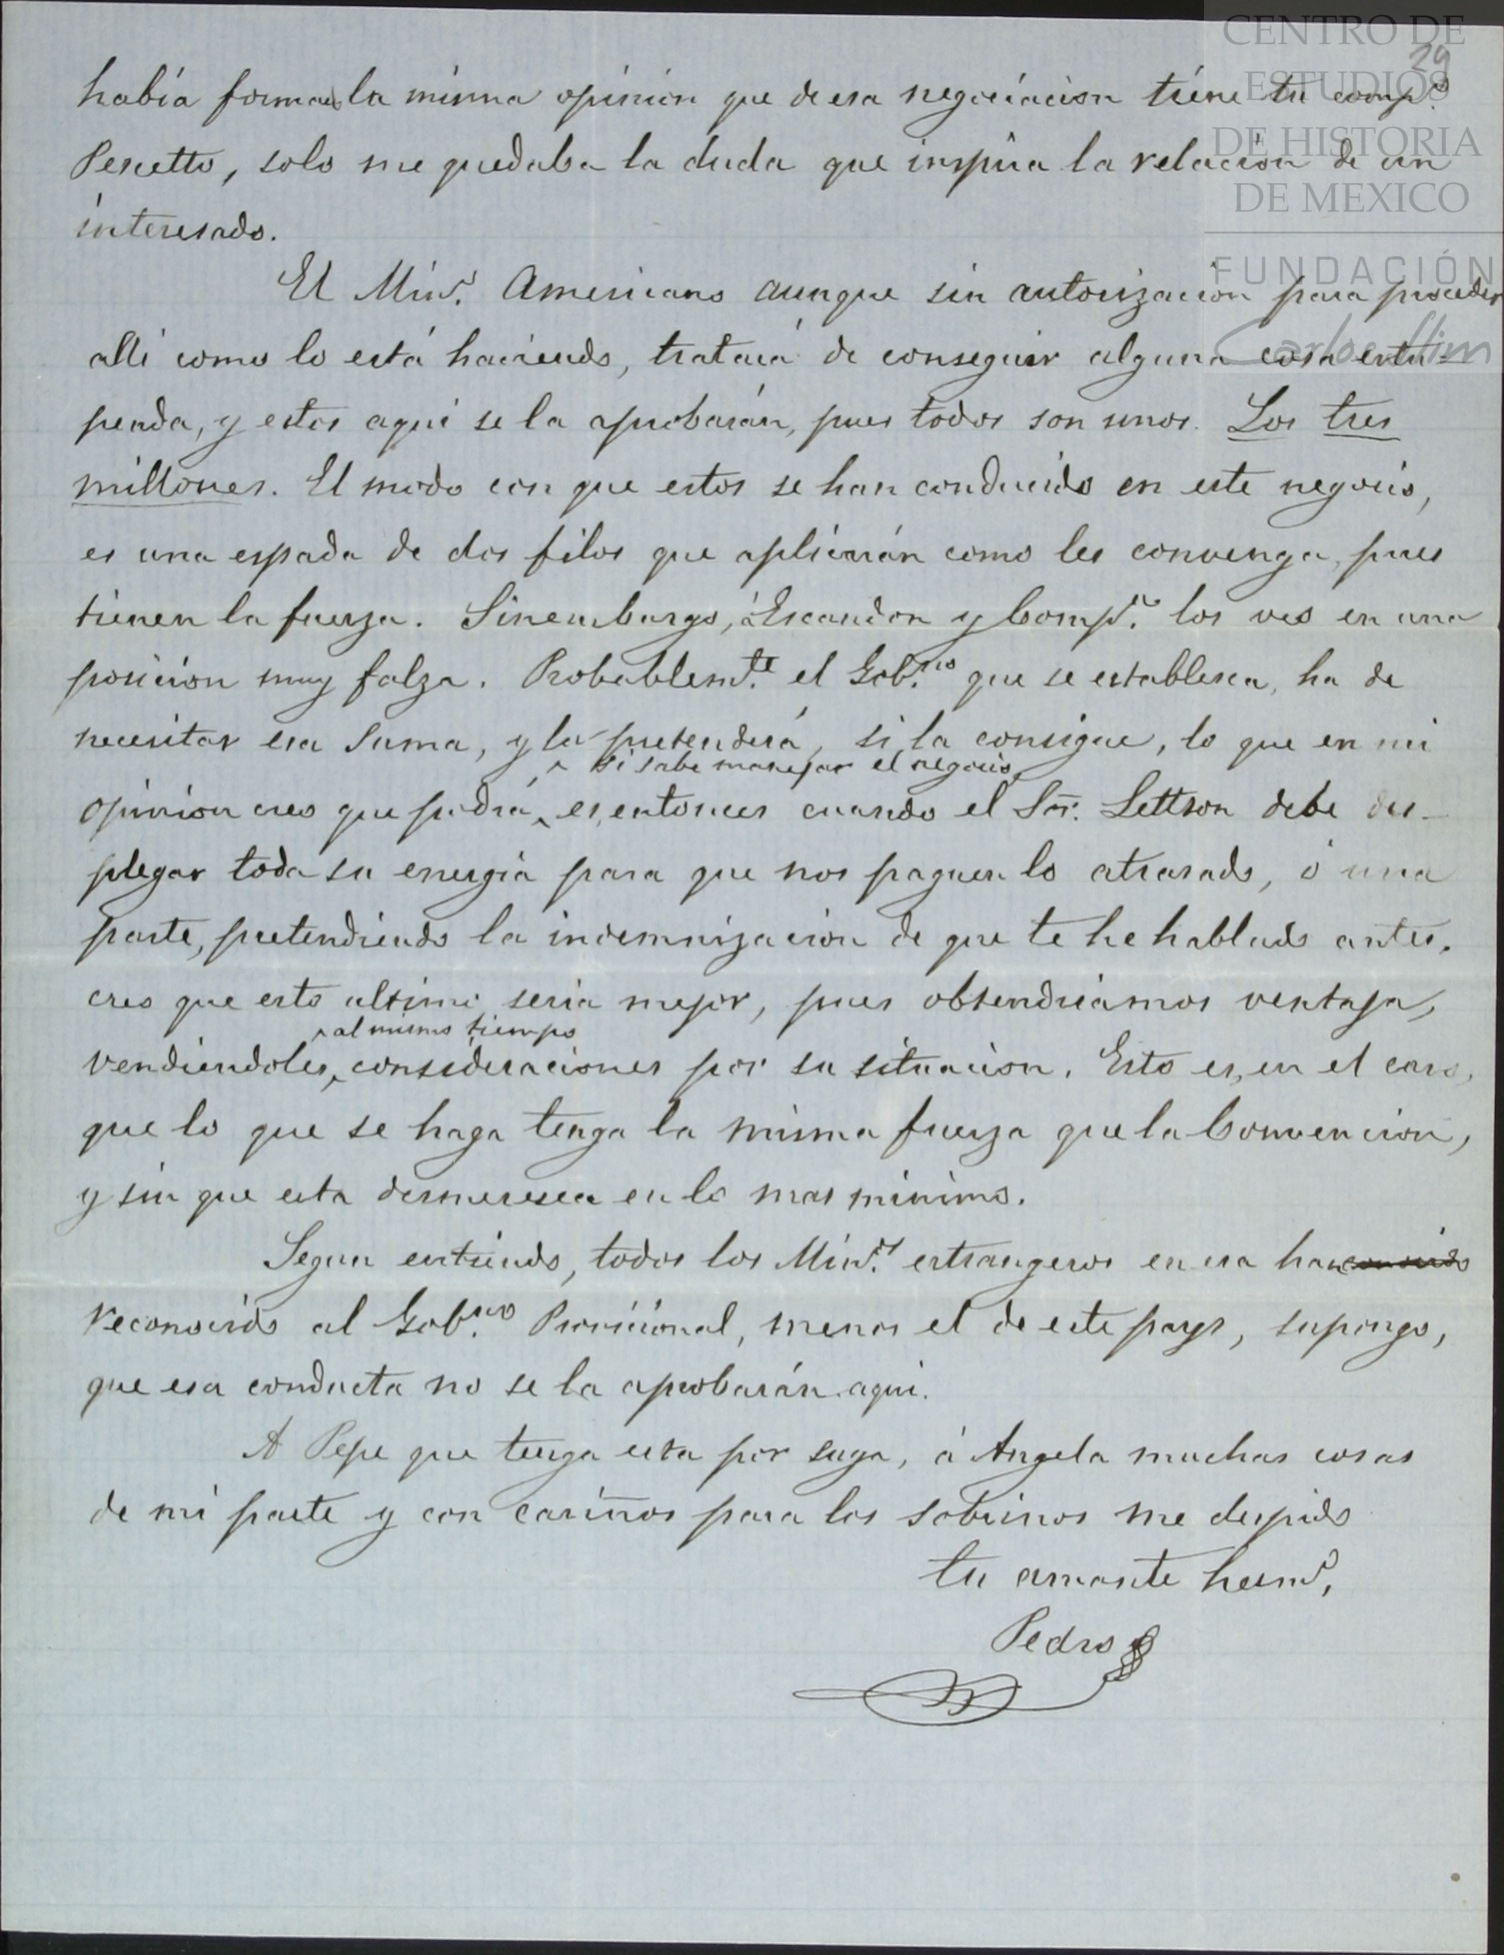 CENTRO DE
ESTUDIOS
DE HISTORIA
DE MEXICO
FUNDACIÓN
Carlos Slim
29
había formado la misma opinion que de esa negociacion tiene tu comp.º
Pescetto, solo me quedaba la duda que inspira la relación de un
interesado.
El Min.º Americano aunque sin autorizacion para proceder
alli como lo está haciendo, tratará de conseguir alguna cosa estu-
penda, y estos aquí se la aprobarán, pues todos son unos. Los tres
millones. El modo con que estos se han conducido en este negocio,
es una espada de dos filos que aplicarán como les convenga, pues
tienen la fuerza. Sinembargo, á Escandon y Comp.ª los veo en una
posicion muy falza. Probablem.te el Gob.no que se establesca, ha de
necesitar esa suma, y la pretenderá, si la consigue, lo que en mi
si sabe manejar el negocio,
opinion creo que podrá, es, entonces cuando el Sor. Lettson debe des-
plegar toda su energia para que nos paguen lo atrasado, ó una
parte, pretendiendo la indemnizacion de que te he hablado antes.
creo que esto ultimo seria mejor, pues obtendriamos ventaja,
al mismo tiempo
vendiendoles, consideraciones por su situacion. Esto es, en el caso,
que lo que se haga tenga la misma fuerza que la Convencion,
y sin que esta desmeresca en lo mas minimo.
Segun entiendo, todos los Min.s estrangeros en esa han conosido
reconosido al Gob.no Provicional, menos el de este pays, supongo,
que esa conducta no se la aprobarán aqui.
A Pepe que tenga esta por suya, á Angela muchas cosas
de mi parte y con cariños para los sobrinos me despido
tu amante herm.º,
Pedro